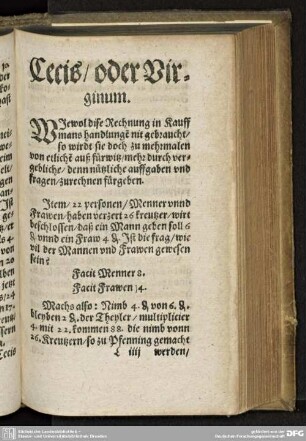 Cecis/ oder Vir-
ginum.
WIewol dise Rechnung in Kauff
mans handlungē nit gebraucht/
so wirdt sie doch zu mehrmalen
von etlichē auß fürwitz/ mehr durch ver-
gebliche/ denn nützliche auffgaben vnd
fragen/ zurechnen fürgeben.
Item/ 22 personen/ Menner vnnd
Frawen/ haben verzert 26 kreutzer/ wirt
beschlossen/ daß ein Mann geben soll 6
₰ vnnd ein Fraw 4 ₰. Ist die frag/ wie
vil der Mannen vnd Frawen gewesen
sein?
Facit Menner 8.
Facit Frawen 14.
Machs also: Nimb 4.₰ von 6.₰.
bleyben 2 ₰. der Theyler/ multiplicier
4. mit 22. kommen 88. die nimb vonn
26. Kreutzern/ so zu Pfenning gemacht
L iiij werden/
Cecis